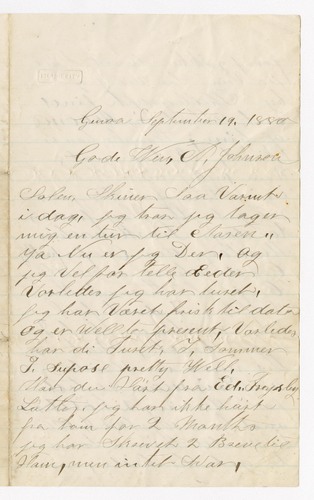 Genoa September 19. 1880
Gode Ven, A, Johnson
Solen, Skiner Saa Varmt
i dag, jeg tror jeg tager
mig en tur til Naren,,
Ja Nu er jeg Der, og
jeg Vel for telle Eeder
Vorledes jeg har luret,
jeg har Været frisk til dato
Og er Well to present, Vorledes
har di Turet, I, Sommer
I Supose pretty Well,
Har du Hört fra Ed,
Latter, jeg har ikke hört
fra ham for 2 Months
jeg har Skrevet 2 Breve til
Ham, men intet Svar,